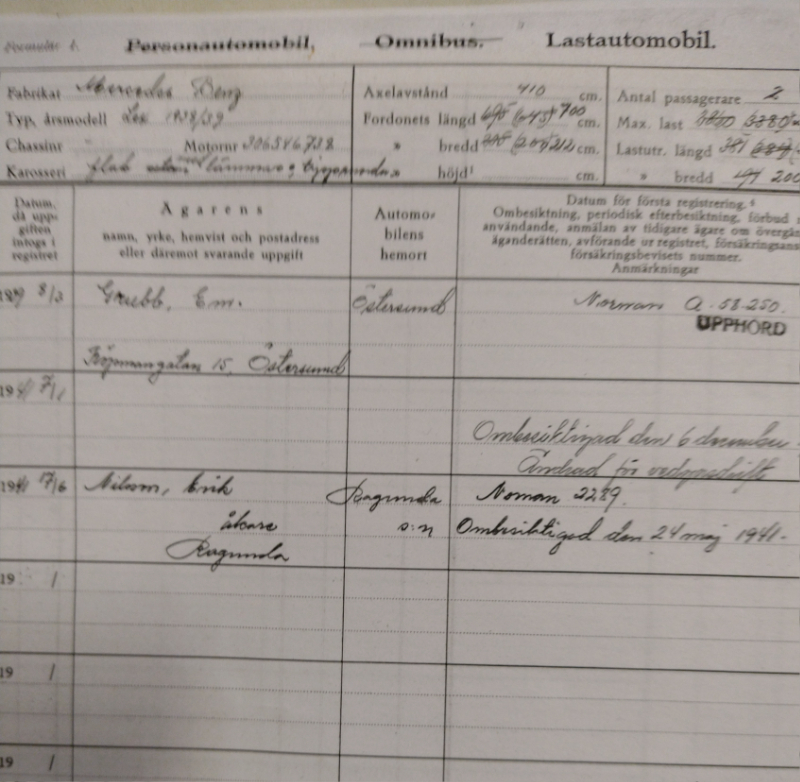 Formulär 1.
Personautomobil, Omnibus. Lastautomobil.
Fabrikat Mercedes Benz
Typ, årsmodell 1938/39
Chassinr Motornr 306546738
Karosseri flak
Axelavstånd 410 cm.
Fordonets längd 695 (645) 700 cm.
» bredd (205) 212 cm.
» höjd¹ cm.
Antal passagerare 2
Max. last
Lastutr. längd 381
» bredd 197 200
Datum,
då upp-
giften
intogs i
registret
Ägarens
namn, yrke, hemvist och postadress
eller däremot svarande uppgift
Automo-
bilens
hemort
Datum för första registrering.
Ombesiktning, periodisk efterbesiktning, förbud
användande, anmälan av tidigare ägare om övergån
äganderätten, avförande ur registret, försäkringsans
försäkringsbevisets nummer.
Anmärkningar
8/3 Grubb, Em. Östersund Norman A. 58-250.
UPPHÖRD
Köpmangatan 15, Östersund
19 7/1
Ombesiktigad den 6 december
Ändrad för vedgasdrift
1941 17/6 Nilsson, Erik Ragunda Norman 2289.
åkare s:n Ombesiktigad den 24 maj 1941.
Ragunda
19 /
19 /
19 /